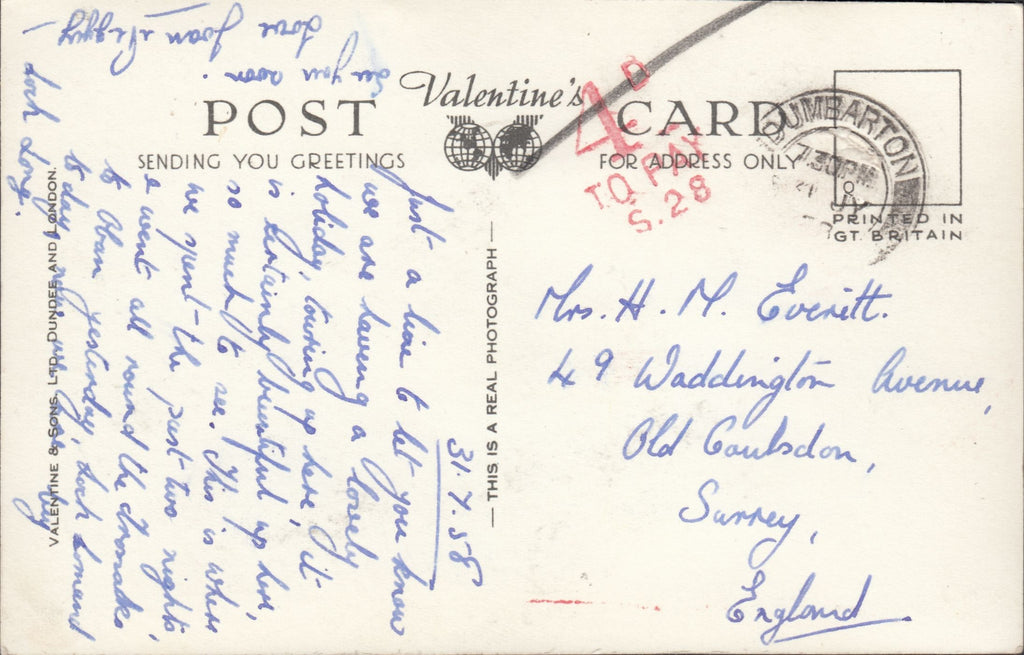 POST
Valentine's
CARD
SENDING YOU GREETINGS
FOR ADDRESS ONLY
4D
TO PAY
S.28
DUMBARTON
7.30PM
PRINTED IN
GT. BRITAIN
31.7.58
Just a line to let you know
we are having a lovely
holiday, touring up here, it
is certainly beautiful up here,
so much to see. This is where
we spent the past two nights,
& went all round the
to Oban yesterday, Loch Lomond
to day, we go by
Loch Long.
see you soon.
Love Joan & Peggy
VALENTINE & SONS, LTD., DUNDEE AND LONDON.
THIS IS A REAL PHOTOGRAPH
Mrs. H. M. Everitt.
49 Waddington Avenue,
Old Coulsdon,
Surrey,
England.